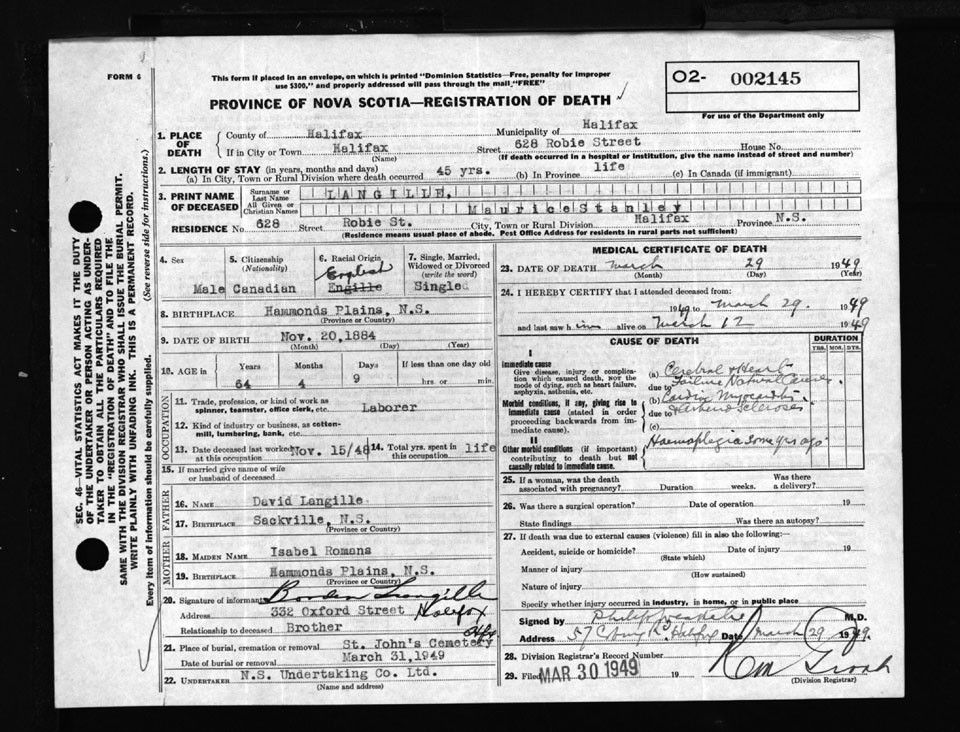 FORM 6
This form if placed in an envelope, on which is printed "Dominion Statistics—Free, penalty for improper
use $300," and properly addressed will pass through the mail "FREE"
O2- 002145
For use of the Department only
PROVINCE OF NOVA SCOTIA—REGISTRATION OF DEATH
1. PLACE OF DEATH
County of Halifax
Municipality of Halifax
If in City or Town Halifax Street 628 Robie Street House No.
(Name) (If death occurred in a hospital or institution, give the name instead of street and number)
2. LENGTH OF STAY (in years, months and days)
(a) In City, Town or Rural Division where death occurred 45 yrs. (b) In Province life (c) In Canada (if immigrant)
3. PRINT NAME OF DECEASED
Surname or Last Name LANGILLE,
All Given or Christian Names Maurice Stanley
RESIDENCE No. 628 Street Robie St. City, Town or Rural Division Halifax Province N.S.
(Residence means usual place of abode. Post Office Address for residents in rural parts not sufficient)
4. Sex Male
5. Citizenship (Nationality) Canadian
6. Racial Origin English Engille
7. Single, Married, Widowed or Divorced (write the word) Singled
8. BIRTHPLACE Hammonds Plains, N.S.
(Province or Country)
9. DATE OF BIRTH Nov. 20, 1884
(Month) (Day) (Year)
10. AGE in Years Months Days If less than one day old
64 4 9 hrs. or min.
OCCUPATION
11. Trade, profession, or kind of work as
spinner, teamster, office clerk, etc. Laborer
12. Kind of industry or business, as cotton-
mill, lumbering, bank, etc.
13. Date deceased last worked at this occupation Nov. 15/48
14. Total yrs. spent in this occupation life
15. If married give name of wife
or husband of deceased
FATHER
16. NAME David Langille
17. BIRTHPLACE Sackville, N.S.
(Province or Country)
MOTHER
18. MAIDEN NAME Isabel Romans
19. BIRTHPLACE Hammonds Plains, N.S.
(Province or Country)
20. Signature of informant Borden Langille
Address 332 Oxford Street Halifax
Relationship to deceased Brother
21. Place of burial, cremation or removal St. John's Cemetery Hfx
Date of burial or removal March 31, 1949
22. UNDERTAKER N.S. Undertaking Co. Ltd.
(Name and address)
MEDICAL CERTIFICATE OF DEATH
23. DATE OF DEATH March 29 1949
(Month) (Day) (Year)
24. I HEREBY CERTIFY that I attended deceased from:
19 to March 29. 1949
and last saw him alive on March 12 1949
CAUSE OF DEATH
DURATION
YRS. MOS. DYS.
I
Immediate cause
Give disease, injury or compli-
cation which caused death, NOT the
mode of dying, such as heart failure,
asphyxia, asthenia, etc.
(a) Cerebral & Heart
due to Failure Natural Causes.
Morbid conditions, if any, giving rise to
immediate cause (stated in order
proceeding backwards from im-
mediate cause).
(b)
due to
(c)
II
Other morbid conditions (if important)
contributing to death but not
causally related to immediate cause.
Haemaplegia some yrs ago
25. If a woman, was the death
associated with pregnancy? Duration weeks. Was there a delivery?
26. Was there a surgical operation? Date of operation 19
State findings Was there an autopsy?
27. If death was due to external causes (violence) fill in also the following:—
Accident, suicide or homicide? Date of injury 19
(State which)
Manner of injury
(How sustained)
Nature of injury
Specify whether injury occurred in industry, in home, or in public place
Signed by M.D.
Address Halifax Date March 29 1949.
28. Division Registrar's Record Number
29. Filed MAR 30 1949 19
(Division Registrar)
SEC. 46—VITAL STATISTICS ACT MAKES IT THE DUTY
OF THE UNDERTAKER OR PERSON ACTING AS UNDER-
TAKER TO OBTAIN ALL THE PARTICULARS REQUIRED
IN THE "REGISTRATION OF DEATH" AND TO FILE THE
SAME WITH THE DIVISION REGISTRAR WHO SHALL ISSUE THE BURIAL PERMIT.
WRITE PLAINLY WITH UNFADING INK. THIS IS A PERMANENT RECORD.
Every item of information should be carefully supplied. (See reverse side for instructions.)